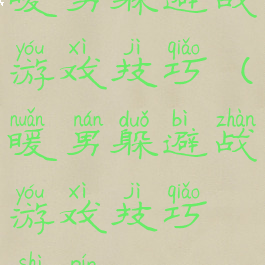 暖男躲避战
yóu xì jì qiǎo
游戏技巧（
nuǎn nán duǒ bì zhàn
暖男躲避战
yóu xì jì qiǎo
游戏技巧
shì pín